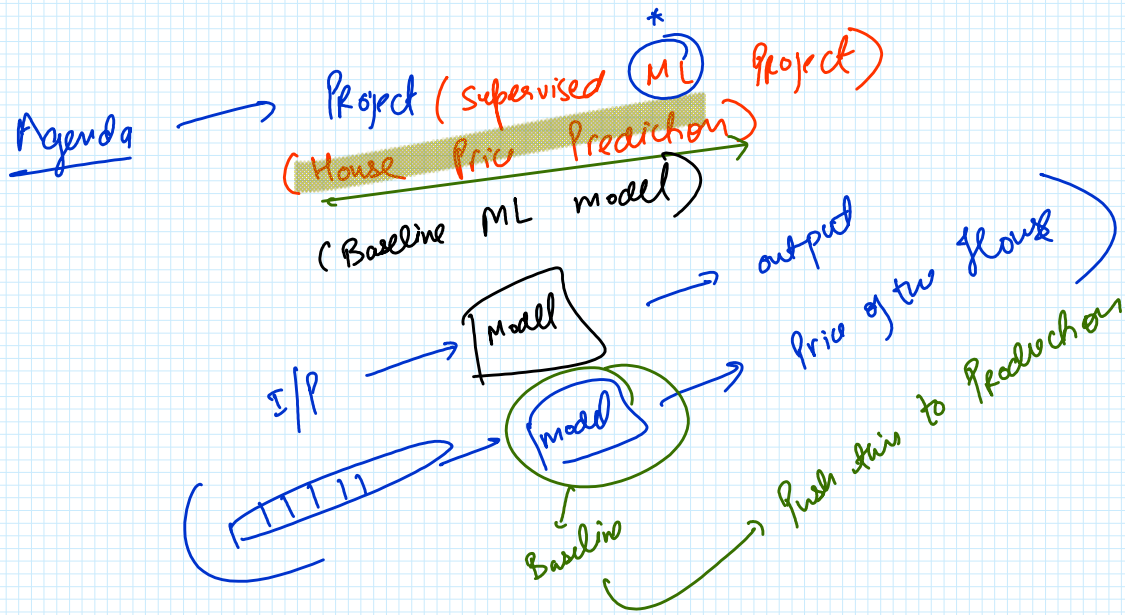 *
Agenda → Project (Supervised ML Project)
(House Price Prediction)
(Baseline ML model)
I/P → Model → output
Model → Price of the House
Baseline
Push this to Production